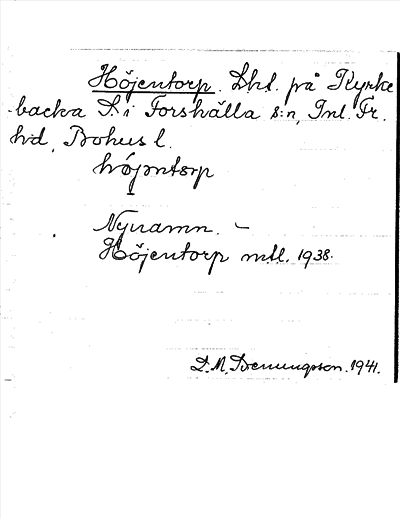 Höjentorp. Lht. på Kyrke
backa S. i Forshälla s:n, Inl. Fr.
hd, Bohus l.
höjentorp
Nynamn. –
Höjentorp mtl. 1938.
D. M. 1941.